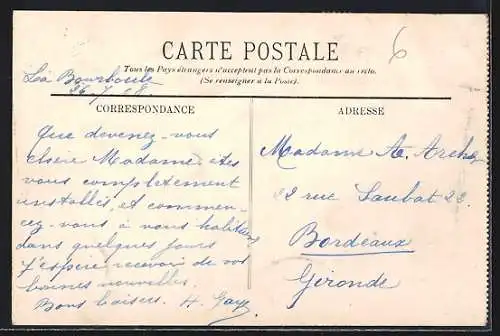 6
CARTE POSTALE
Tous les Pays étrangers n'acceptent pas la Correspondance au recto.
(Se renseigner à la Poste).
La Bourboule
26-7-08
CORRESPONDANCE
ADRESSE
Que devenez-vous
chère Madame, êtes
vous complètement
installés, et commen-
cez-vous à vous habituer
dans quelques jours
J'espère recevoir de vos
bonnes nouvelles.
Bons baisers. H. Gay
Madame A.
22 rue Saubat 22.
Bordeaux
Gironde